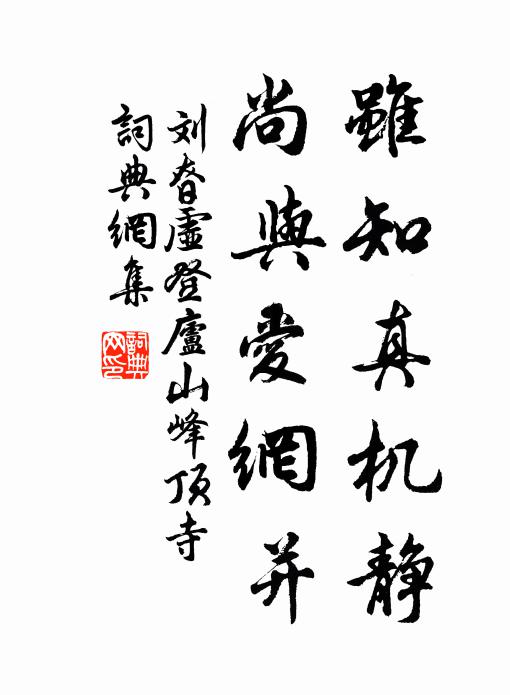 雖知真机静
尚與愛網并
刘眘虛登廬山峰頂寺
詞典網集
詞典
网印